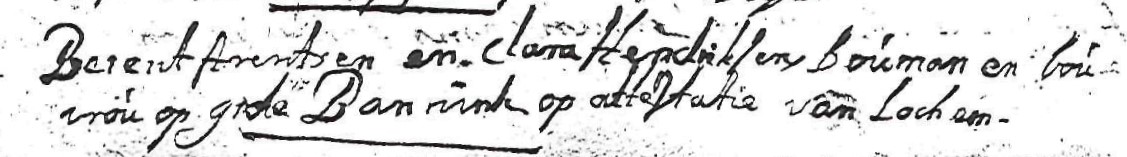 Berent Arentsen en Clara Hendriksen bóuman en bóu-
vróu op grote Bannink op attestatie van Lochem.